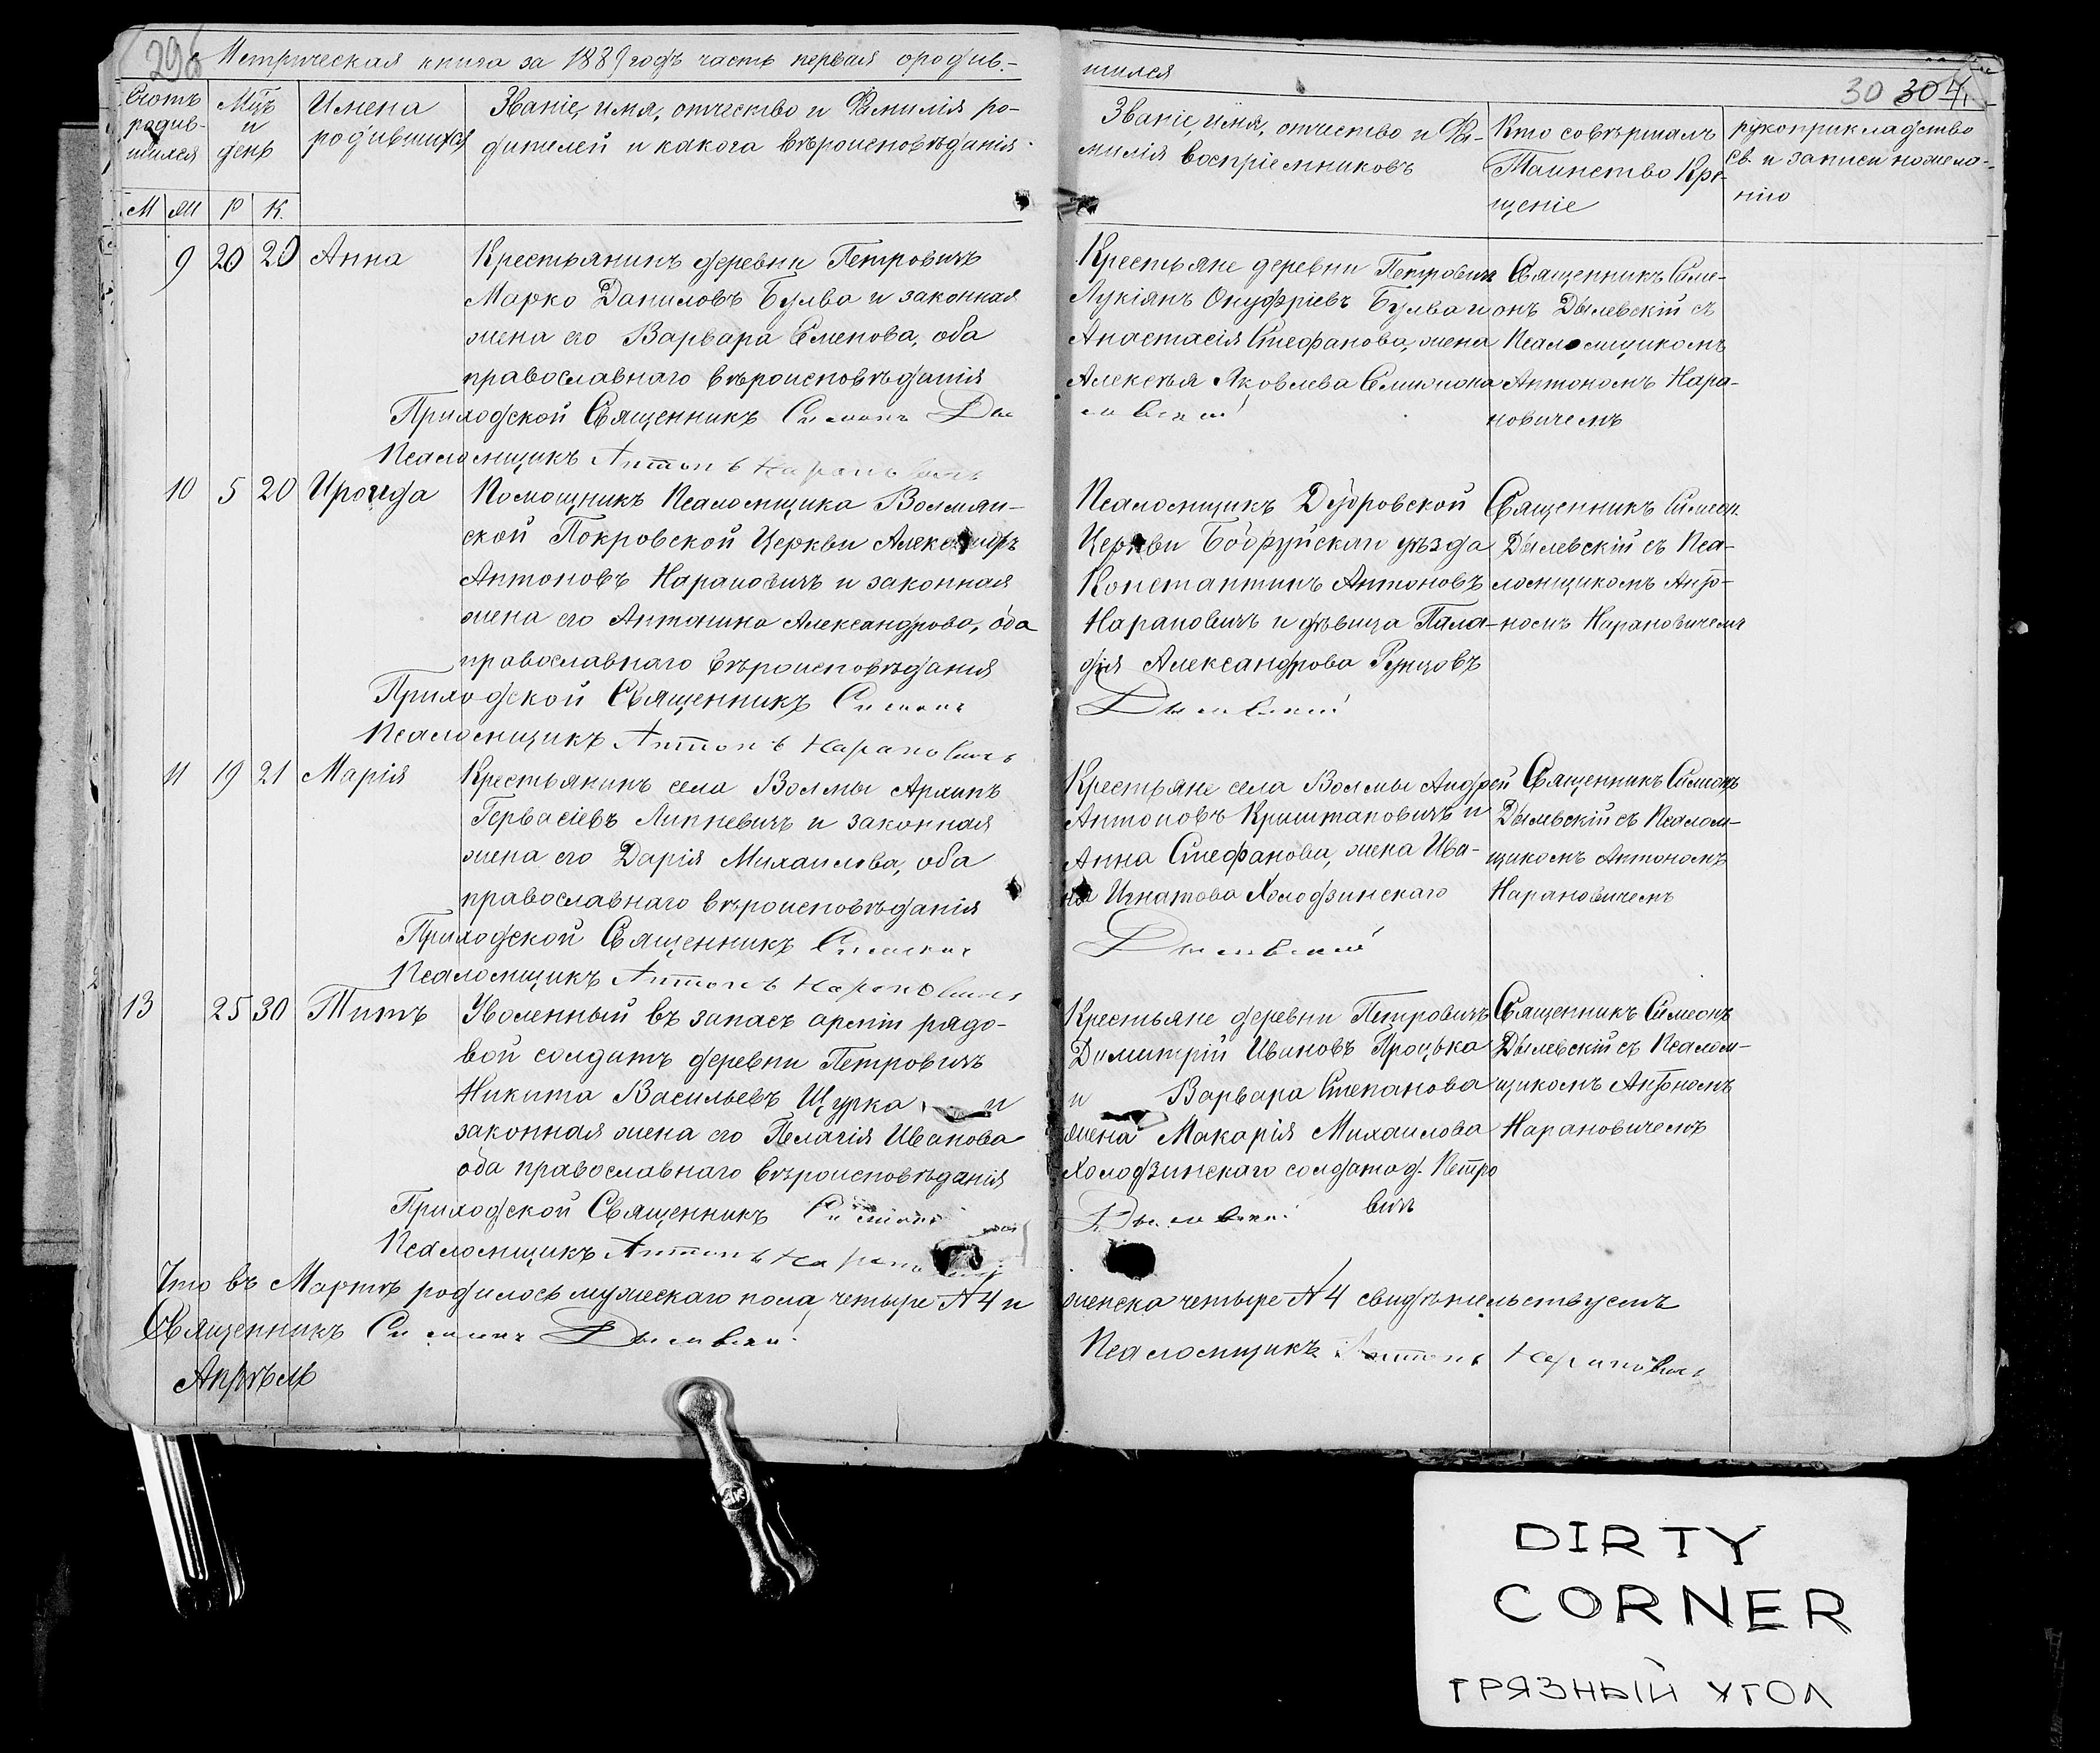 298
Метрическая книга за 1889 годъ часть первая о родив-
Счотъ родив-шихся
Мцъ и день
Имена родившихся
Званіе, имя, отчество и Фамилія ро-
дителей и какога вѣроисповѣданія.
М М Р К.
9 20 20 Анна
Крестьянинъ деревни Петровичъ
Марко Даниловъ Булва и законная
жена его Варвара Семенова, оба
православнаго вѣроисповѣданія
Приходской Священникъ Симонъ Ды
Псаломщикъ Антонъ Нарановичъ
10 5 20 Ироида
Помощникъ Псаломщика Волмян-
ской Покровской Церкви Александръ
Антоновъ Нарановичъ и законная
жена его Антонина Александрова, оба
православнаго вѣроисповѣданія
Приходской Священникъ Симонъ
Псаломщикъ Антонъ Нарановичъ
11 19 21 Марія
Крестьянинъ села Волмы Архипъ
Гервасіевъ Липневичъ и законная
жена его Дарія Михаилова, оба
православнаго вѣроисповѣданія
Приходской Священникъ Симонъ
Псаломщикъ Антонъ Нарановичъ
13 25 30 Титъ
Уволенный въ запасъ арміи рядо-
вой солдатъ деревни Петровичъ
Никита Васильевъ Щурка и
законная жена его Пелагія Иванова
оба православнаго вѣроисповѣданія
Приходской Священникъ Симонъ
Псаломщикъ Антонъ
Что въ Мартѣ родилось мужескаго пола четыре №4 и
Священникъ Симонъ Дылевскій
Апрѣль
шихся
30 304
Званіе, имя, отчество и Фа-
милія воспріемниковъ
Кто совѣршалъ
Таинство Кре-
щеніе
рукоприкладство
св. и записи пожела-
нію
Крестьяне деревни Петровичъ
Лукіянъ Онуфріевъ Булва и
Анастасія Стефанова, жена
Алексѣя Яковлева
левскій
Священникъ Симе-
онъ Дылевскій съ
Псаломщикомъ
Антономъ Нара-
новичемъ
Псаломщикъ Дудровской
Церкви Бобруйскаго уѣзда
Константинъ Антоновъ
Нарановичъ и дѣвица Пала-
дія Александрова Рунцовъ
Дылевскій
Священникъ Симеон
Дылевскій съ Пса-
ломщикомъ Анто-
номъ Нарановичемъ
Крестьяне села Волмы Андрей
Антоновъ Криштановичъ и
Анна Стефанова, жена Ива-
на Игнатова Холодзинскаго
Дылевскій
Священникъ Симеонъ
Дылевскій съ Псалом-
щикомъ Антономъ
Нарановичемъ
Крестьяне деревни Петровичъ
Димитрій Ивановъ Процька
и Варвара Степанова
жена Макарія Михаилова
Холодзинскаго солдата д. Петро
вичъ
Дылевскій
Священникъ Симеонъ
Дылевскій съ Псалом-
щикомъ Антономъ
Нарановичемъ
женска четыре №4 свидѣтельствуемъ
Псаломщикъ Антонъ Нарановичъ
DIRTY
CORNER
ГРЯЗНЫЙ УГОЛ